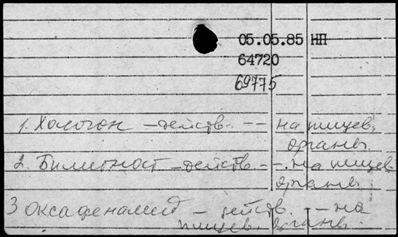 05.05.85 НП
64720
69775
1. Хологон – действ. -- на пищев.
органы
2. Билигност – действ. -- на пищев
органы
3 Оксафенамид – действ. -- на
пищев. органы.